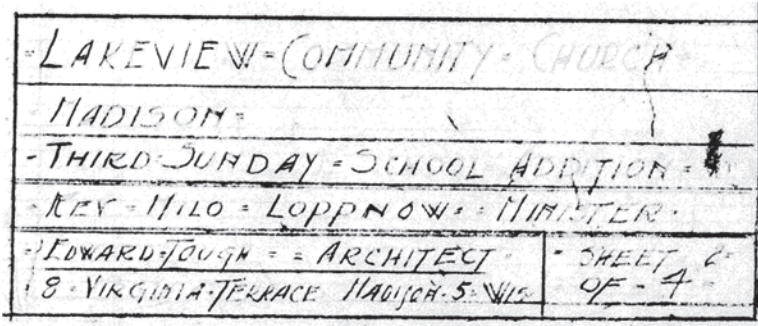 -LAKEVIEW-COMMUNITY-CHURCH-
-MADISON-
-THIRD-SUNDAY-SCHOOL ADDITION-
-REV-MILO-LOPPNOW--MINISTER-
-EDWARD-TOUGH--ARCHITECT-
8-VIRGINIA-TERRACE MADISON-5-WIS
-SHEET 2-
OF-4-